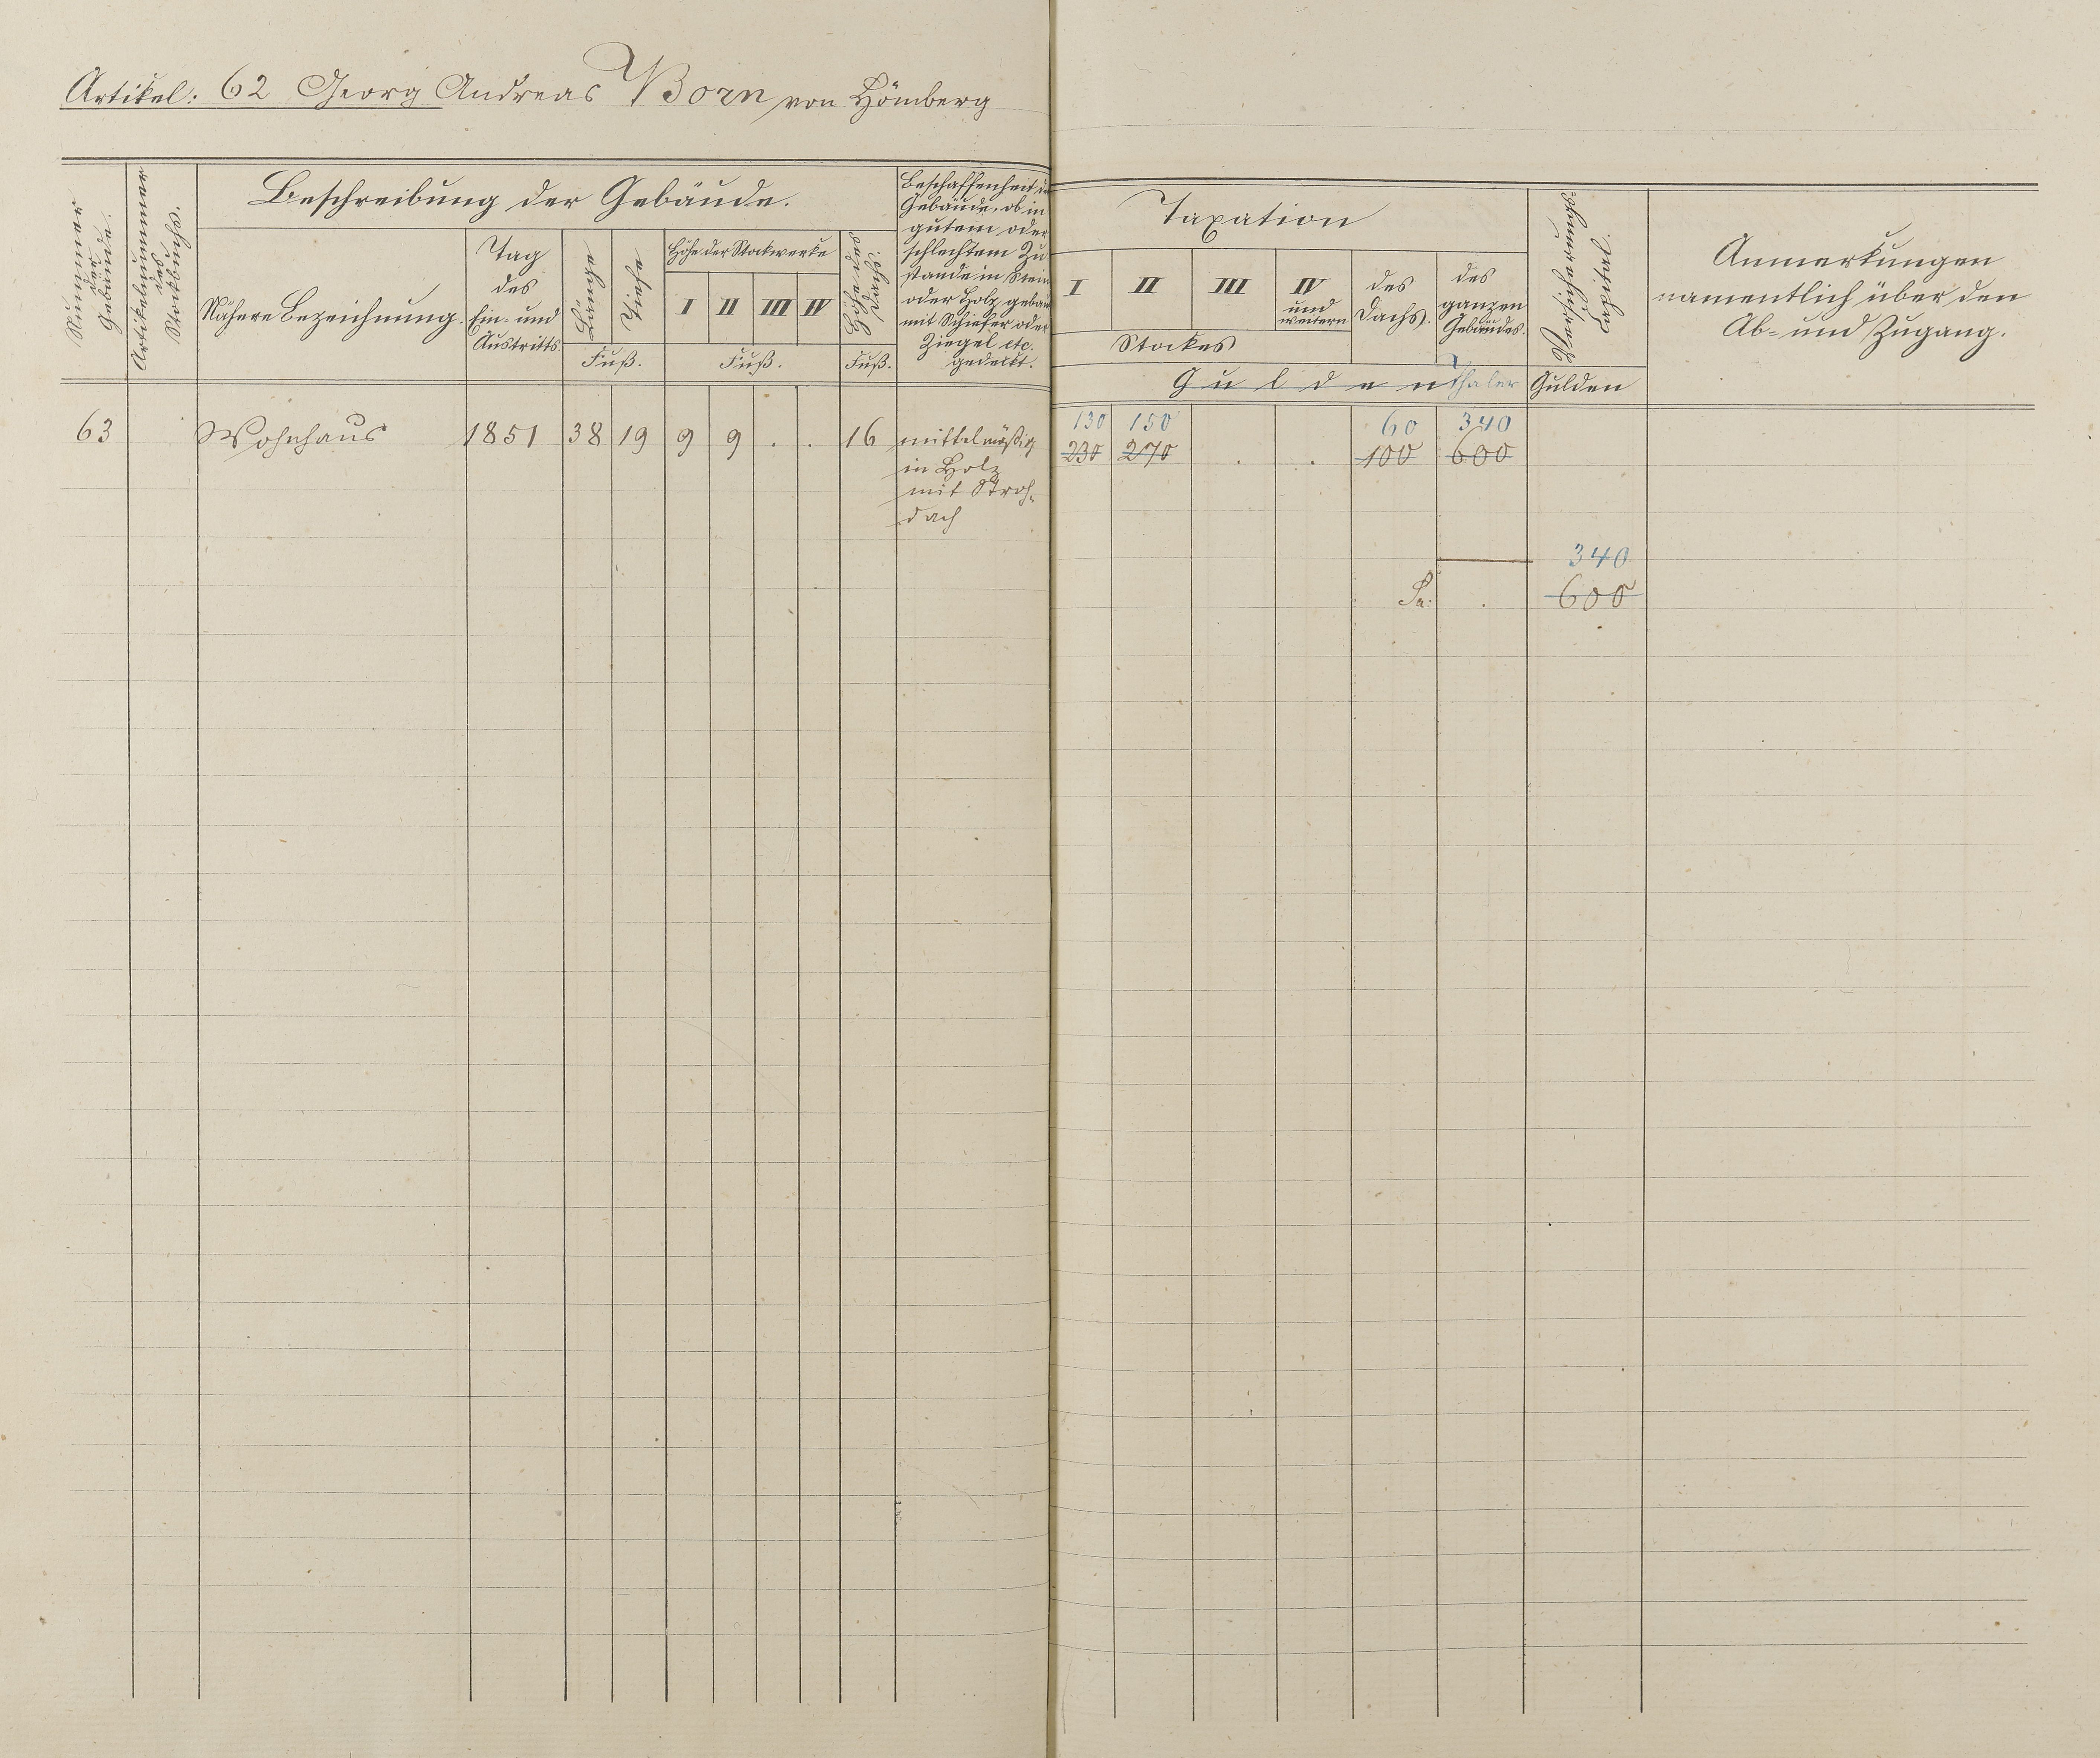 Artikel: 62 Georg Andreas Born von Hömberg
Nummer der Gebäude.
Artikelnummer des Stockbuchs.
Beschreibung der Gebäude.
Nähere Bezeichnung.
Tag
des
Ein- und
Austritts.
Länge
Tiefe
Fuß.
Höhe der Stockwerke
I II III IV
Fuß.
Höhe des Dachs.
Fuß.
Beschaffenheit der
Gebäude, ob in
gutem oder
schlechtem Zu-
stande in Stein
oder Holz gebaut
mit Schiefer oder
Ziegel etc.
gedeckt.
Taxation
I II III IV
und
weitern
Stockes
des
Dachs.
des
ganzen
Gebäudes.
Gulden Thaler
Versicherungs-
capital.
Gulden
Anmerkungen
namentlich über den
Ab- und Zugang.
130 150 60 340
63 Wohnhaus 1851 38 19 9 9 . . 16 mittelmäßig 230 270 . . 100 600
in Holz
mit Stroh-
dach
340
Sa: . 600